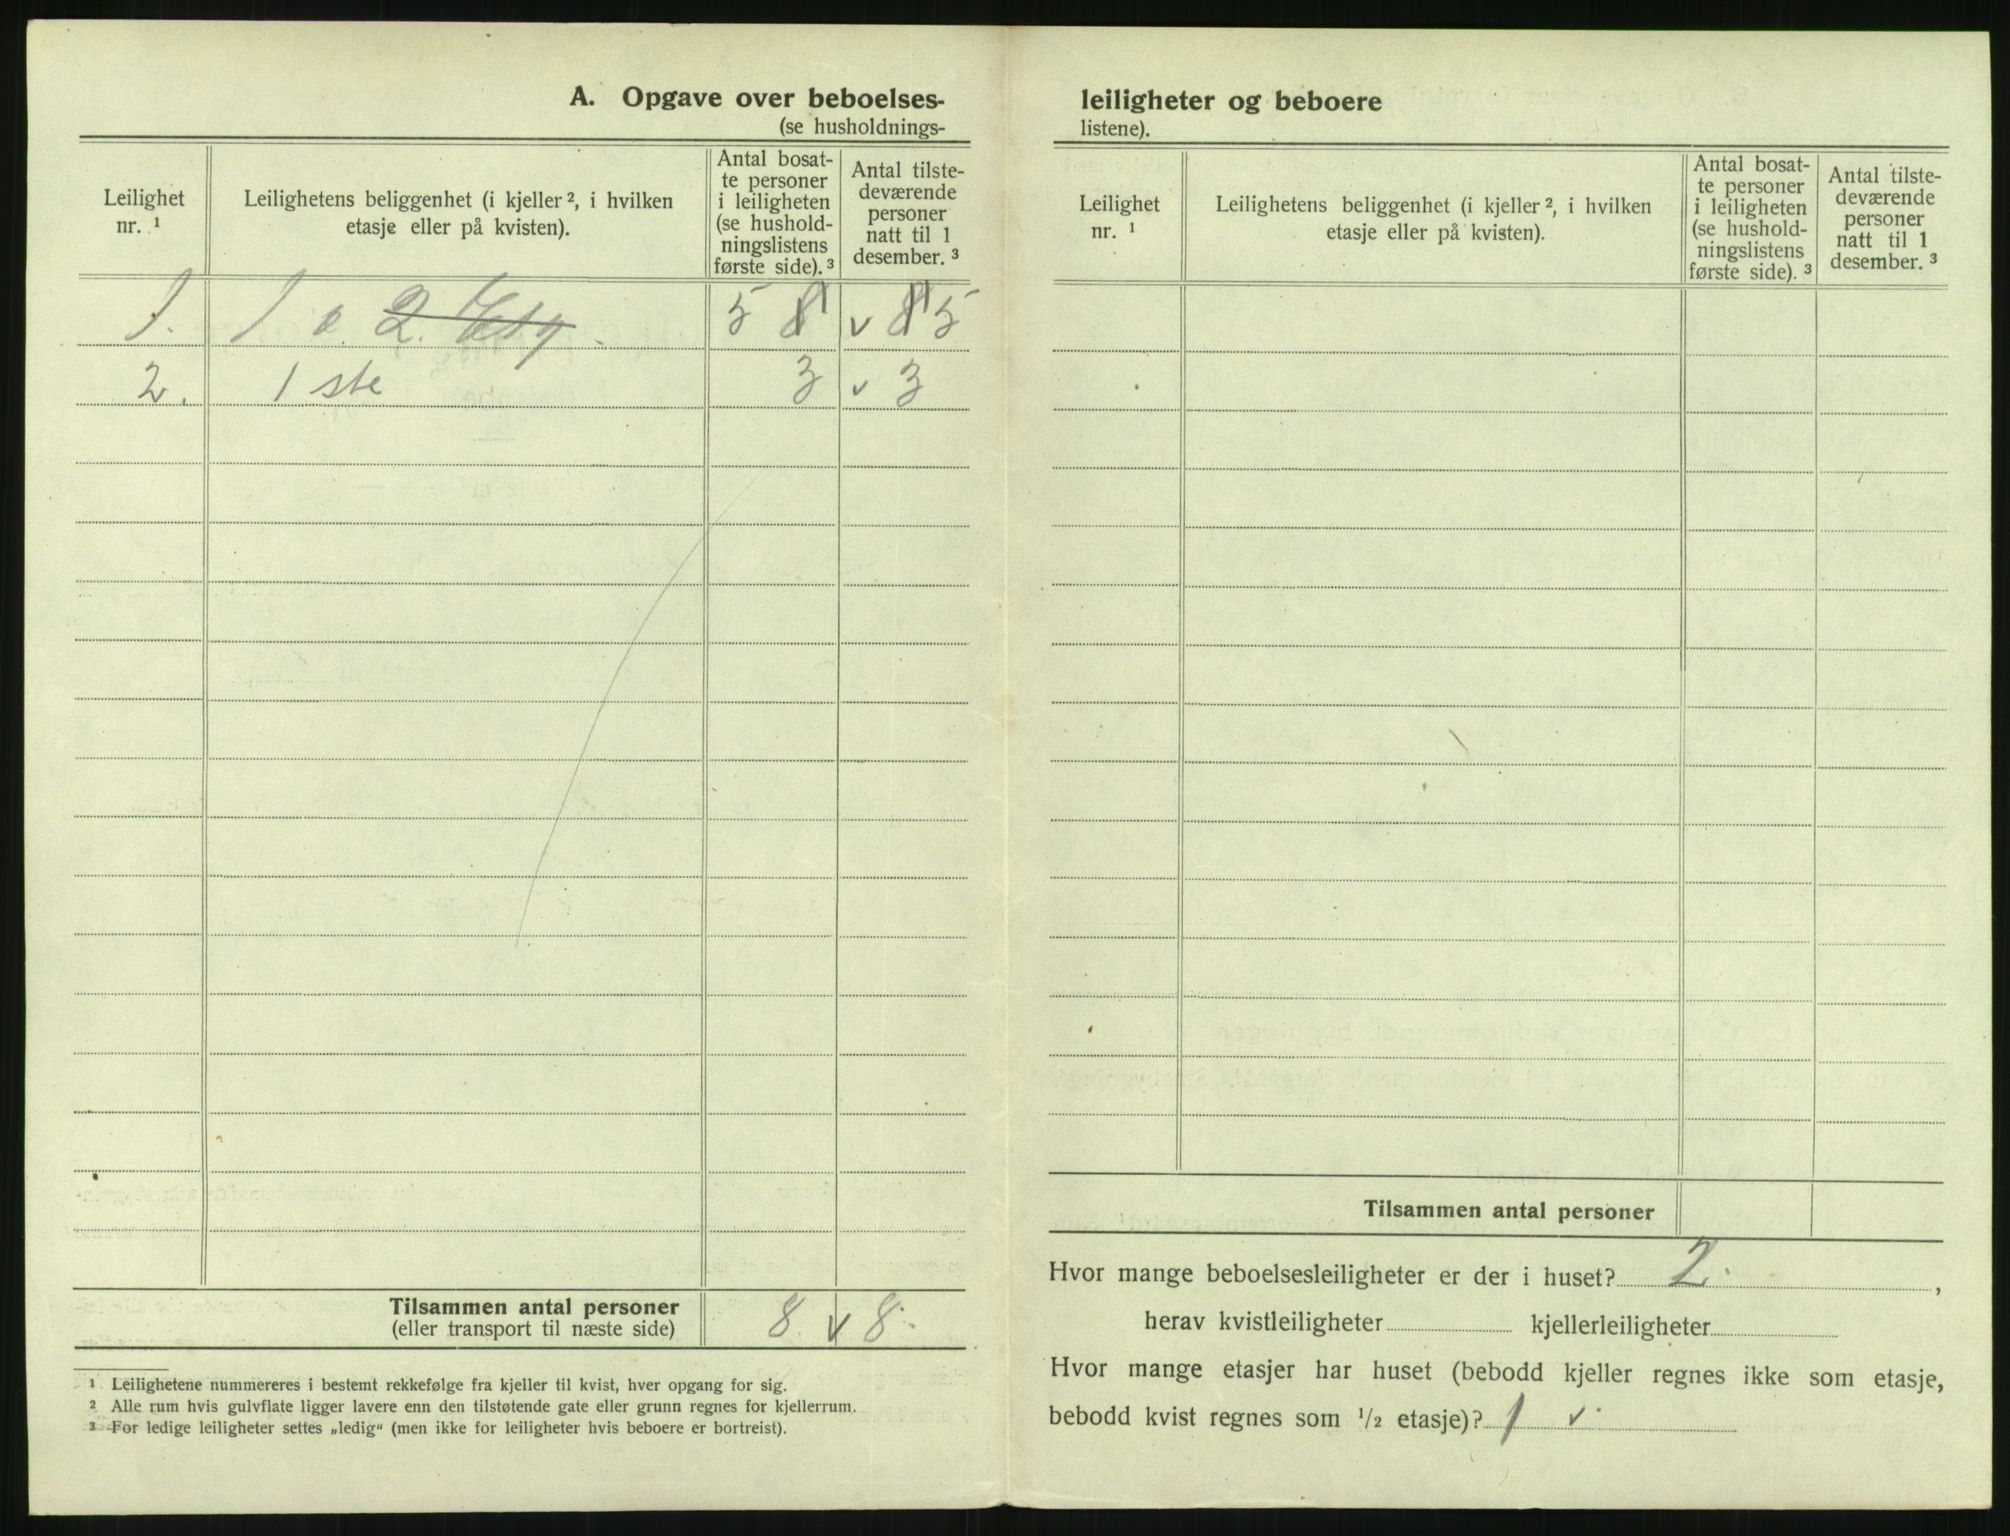 A. Opgave over beboelses-
(se husholdnings-
Leilighet nr. ¹
Leilighetens beliggenhet (i kjeller ², i hvilken etasje eller på kvisten).
Antal bosat-
te personer
i leiligheten
(se hushold-
ningslistens
første side). ³
Antal tilste-
deværende
personer
natt til 1
desember. ³
1. 1 o. 2. Etg. 5 8 v 8 5
2. 1 ste 3 v 3
Tilsammen antal personer 8. v 8.
(eller transport til næste side)
¹ Leilighetene nummereres i bestemt rekkefølge fra kjeller til kvist, hver opgang for sig.
² Alle rum hvis gulvflate ligger lavere enn den tilstøtende gate eller grunn regnes for kjellerrum.
³ For ledige leiligheter settes „ledig“ (men ikke for leiligheter hvis beboere er bortreist).
leiligheter og beboere
listene).
Leilighet nr. ¹
Leilighetens beliggenhet (i kjeller ², i hvilken etasje eller på kvisten).
Antal bosat-
te personer
i leiligheten
(se hushold-
ningslistens
første side). ³
Antal tilste-
deværende
personer
natt til 1
desember. ³
Tilsammen antal personer
Hvor mange beboelsesleiligheter er der i huset? 2. ,
herav kvistleiligheter kjellerleiligheter
Hvor mange etasjer har huset (bebodd kjeller regnes ikke som etasje,
bebodd kvist regnes som ¹/₂ etasje)? 1 v